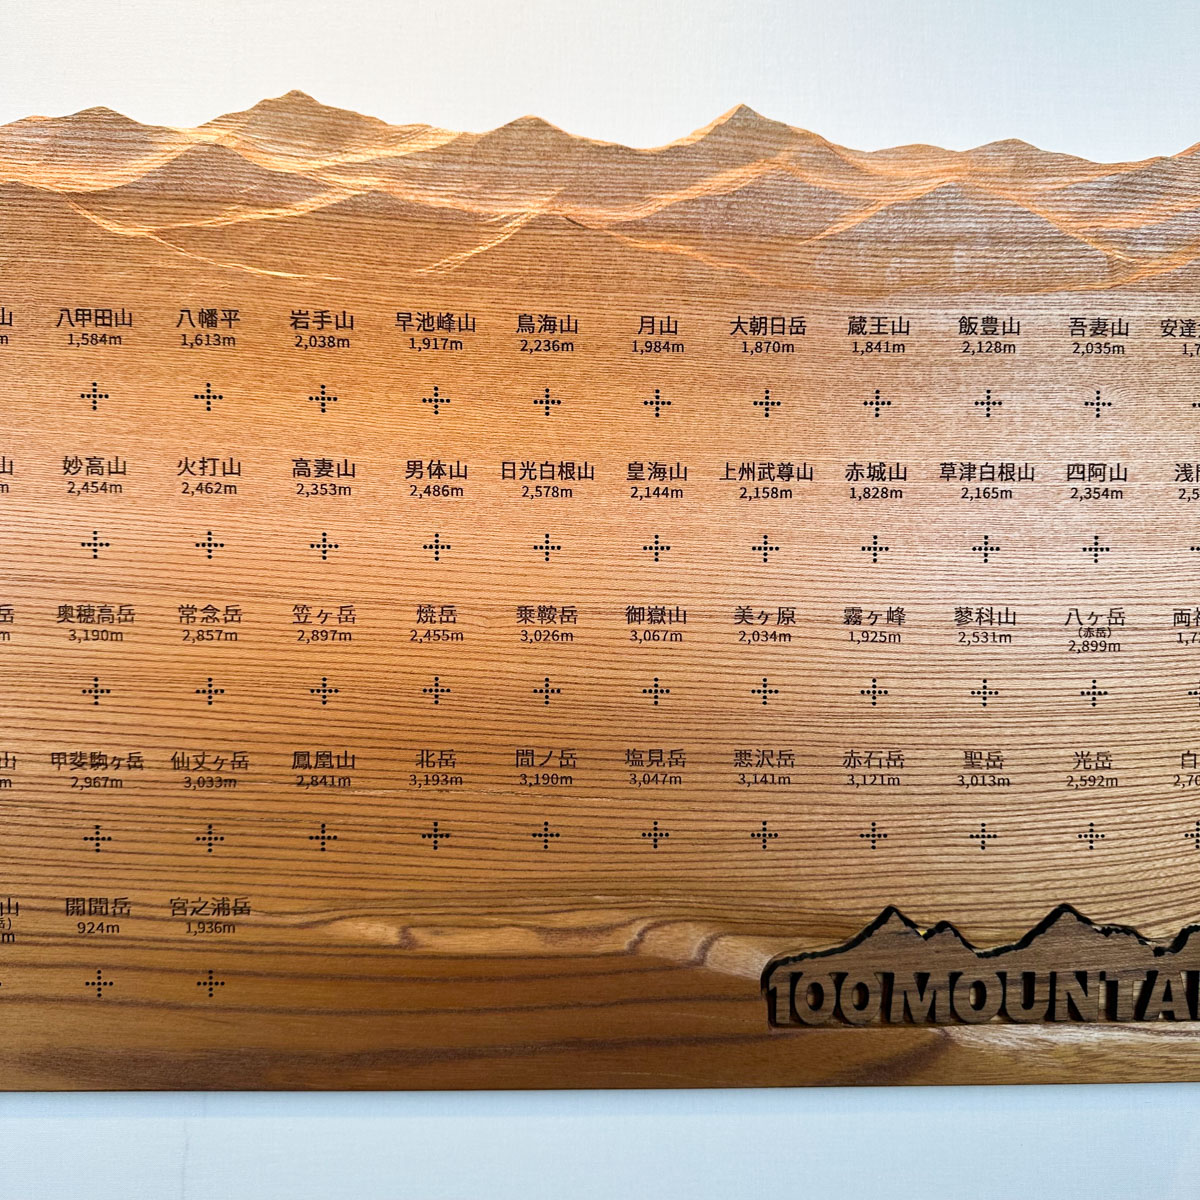 山 八甲田山 八幡平 岩手山 早池峰山 鳥海山 月山 大朝日岳 蔵王山 飯豊山 吾妻山 安達
m 1,584m 1,613m 2,038m 1,917m 2,236m 1,984m 1,870m 1,841m 2,128m 2,035m 1,7
山 妙高山 火打山 高妻山 男体山 日光白根山 皇海山 上州武尊山 赤城山 草津白根山 四阿山 浅
m 2,454m 2,462m 2,353m 2,486m 2,578m 2,144m 2,158m 1,828m 2,165m 2,354m 2,5
岳 奥穂高岳 常念岳 笠ヶ岳 焼岳 乗鞍岳 御嶽山 美ヶ原 霧ヶ峰 蓼科山 八ヶ岳 両
(赤岳)
m 3,190m 2,857m 2,897m 2,455m 3,026m 3,067m 2,034m 1,925m 2,531m 2,899m 1,7
山 甲斐駒ヶ岳 仙丈ヶ岳 鳳凰山 北岳 間ノ岳 塩見岳 悪沢岳 赤石岳 聖岳 光岳 白
m 2,967m 3,033m 2,841m 3,193m 3,190m 3,047m 3,141m 3,121m 3,013m 2,592m 2,70
山 開聞岳 宮之浦岳
岳)
m 924m 1,936m
100 MOUNTA